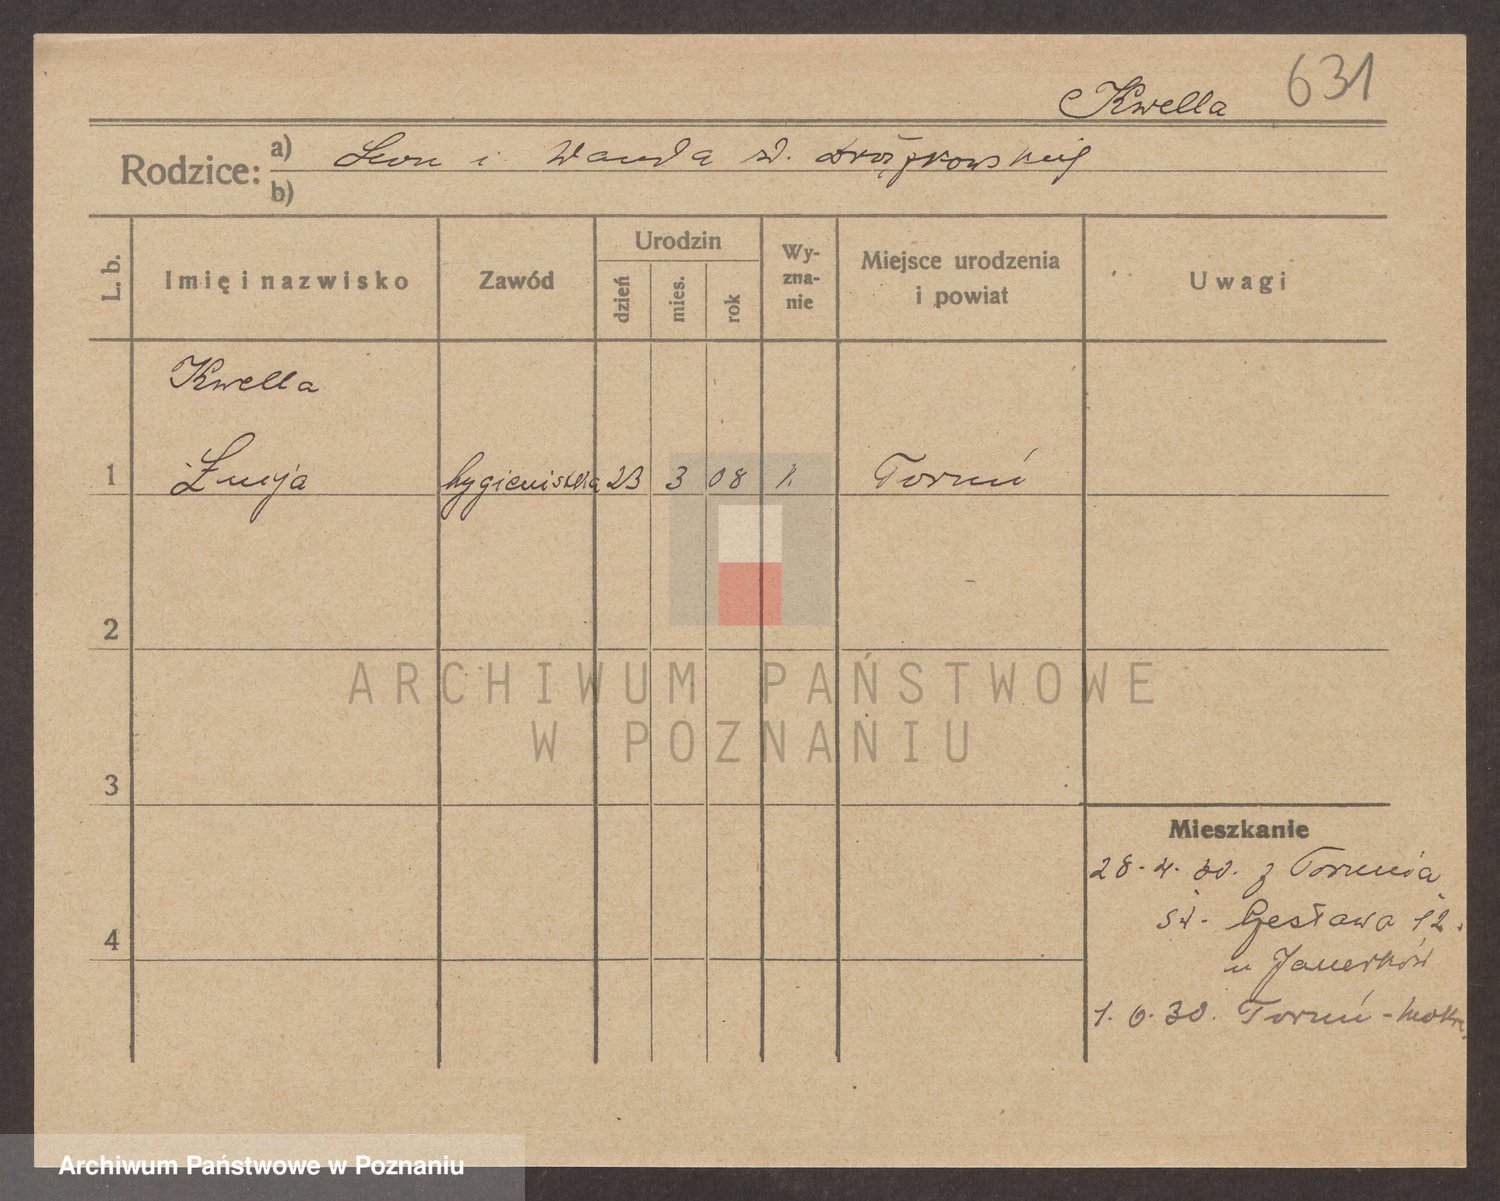 631
Kwella
Rodzice: a) Leon i Wanda z d.
b)
L. b. Imię i nazwisko Zawód Urodzin dzień mies. rok Wyznanie Miejsce urodzenia i powiat Uwagi
Kwella
1 hygienistka 23 3 08 Toruń
2
ARCHIWUM PAŃSTWOWE
W POZNANIU
3
Mieszkanie
28. 4. 30. z Torunia
4 12.
u
1. 6. 30. Toruń - Mokre
Archiwum Państwowe w Poznaniu